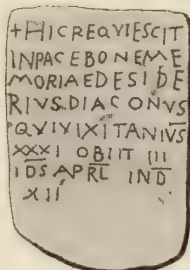 +HICREQVIESCIT
INPACEBONEME
MORIAEDESIDE
RIVS.DIACONVS
QVIVIXITANIVS
XXXI OBIIT III
IDS APRL IND
XII